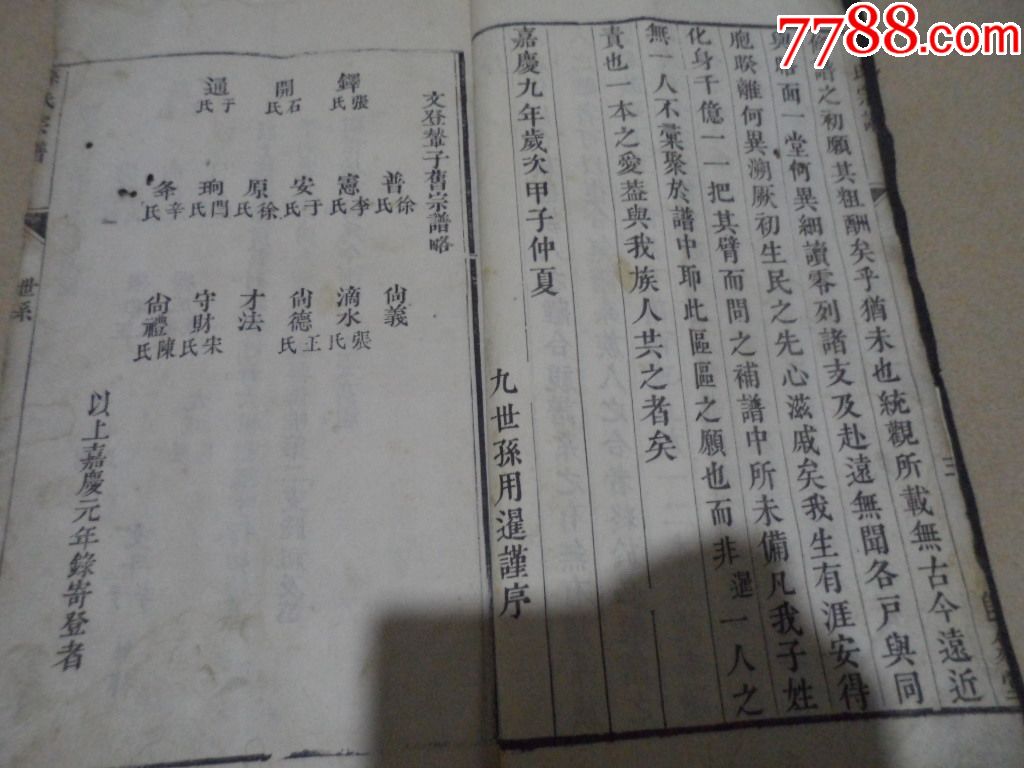 7788.com
譜之初願其粗酬矣乎猶未也統觀所載無古今遠近
面一堂何異細讀零列諸支及赴遠無聞各戸與同
胞暌離何異溯厥初生民之先心滋戚矣我生有涯安得
化身千億一一把其臂而問之補譜中所未備凡我子姓
無一人不彚聚於譜中耶此區區之願也而非暹一人之
責也一本之愛葢與我族人共之者矣
嘉慶九年歲次甲子仲夏
九世孫用暹謹序
三
文登輦子舊宗譜略
鐸 張氏
開 石氏
通 于氏
普 徐氏
憲 李氏
安 于氏
原 徐氏
珣 閆氏
夆 辛氏
尙義
滴水 張氏
尙德 王氏
才法
守財 宋氏
尙禮 陳氏
以上嘉慶元年錄寄登者
氏宗譜
世系